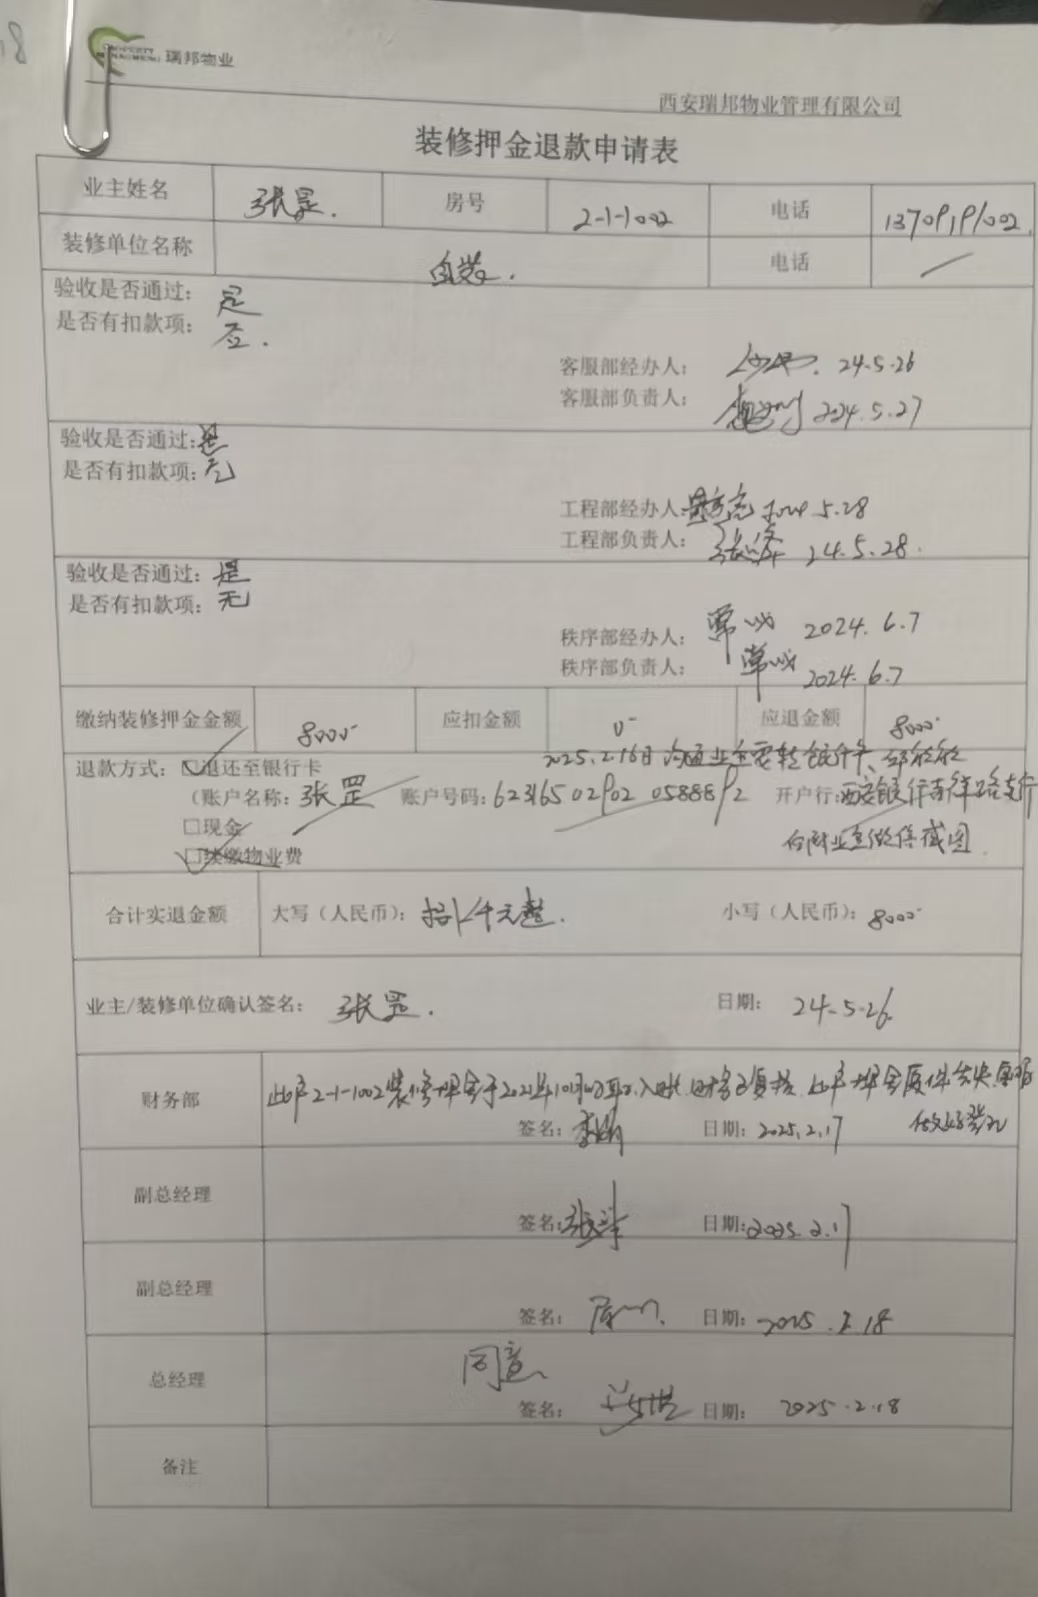 瑞邦物业
西安瑞邦物业管理有限公司
装修押金退款申请表
业主姓名 张罡. 房号 2-1-1002 电话 13709191002.
装修单位名称 自装. 电话 /
验收是否通过: 是
是否有扣款项: 否.
客服部经办人: 24.5.26
客服部负责人: 2024.5.27
验收是否通过: 是
是否有扣款项: 无
工程部经办人: 2024.5.28
工程部负责人: 张 24.5.28.
验收是否通过: 是
是否有扣款项: 无
秩序部经办人: 常 2024.6.7
秩序部负责人: 常 2024.6.7
缴纳装修押金金额 8000 应扣金额 0 应退金额 8000
2025.2.16日沟通业主要转银行卡、
退款方式: ☑退还至银行卡
(账户名称: 张罡 账户号码: 6231650290205888892 开户行: 西安银行吉祥路支行
□现金
□续缴物业费
后附业主微信截图
合计实退金额 大写(人民币): 捌仟元整. 小写(人民币): 8000
业主/装修单位确认签名: 张罡. 日期: 24.5.26.
财务部 此户2-1-1002装修押金于2021年10月 入账, 财务已复核, 此户押金原件丢失,
做好登记
签名: 李 日期: 2025.2.17
副总经理
签名: 张 日期: 2025.2.17
副总经理
签名: 日期: 2025.2.18
总经理 同意
签名: 日期: 2025.2.18
备注